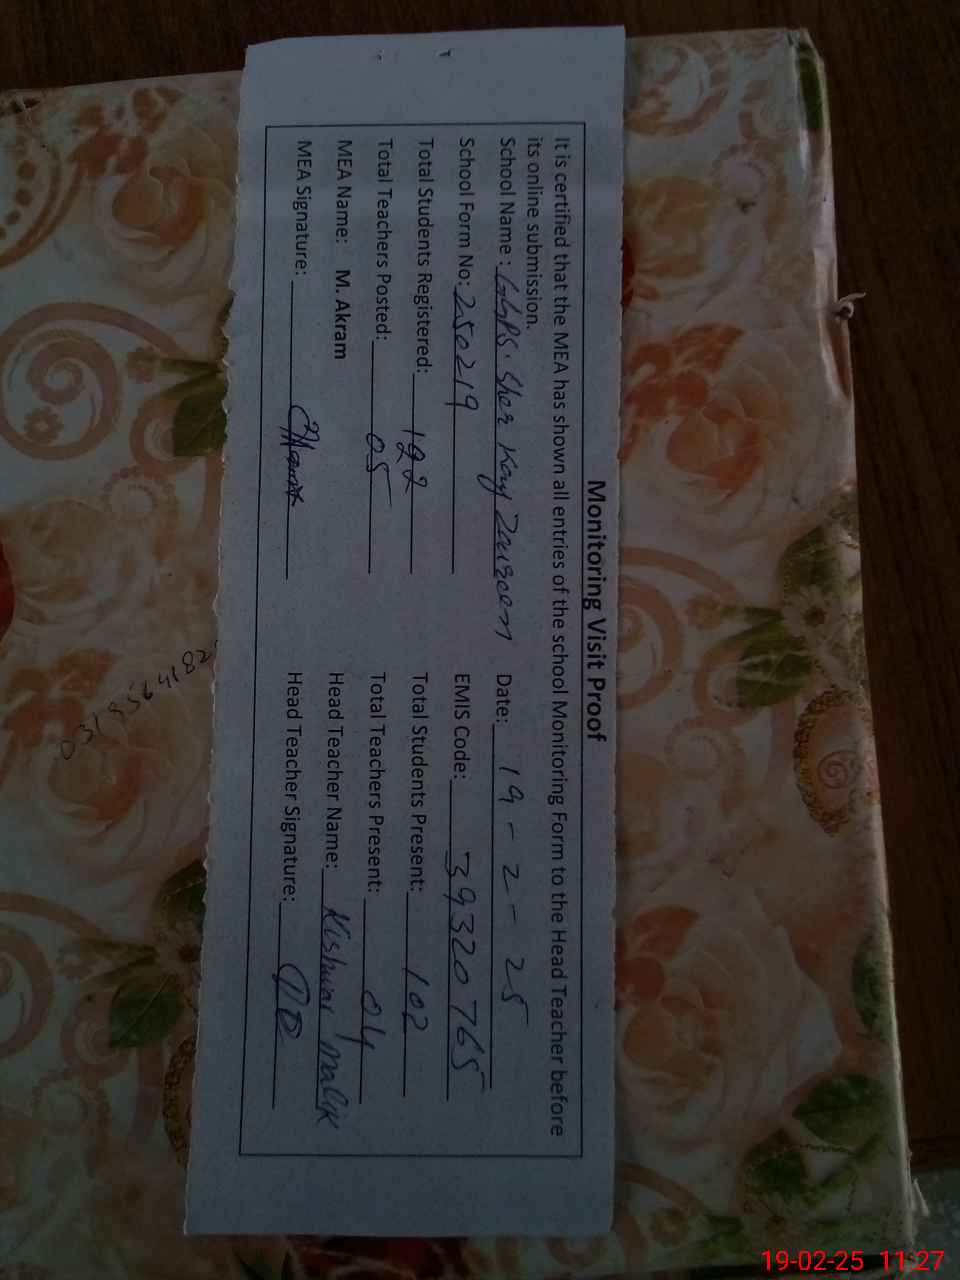 Monitoring Visit Proof
It is certified that the MEA has shown all entries of the school Monitoring Form to the Head Teacher before
its online submission.
School Name : GGPS. Sher Kay Date: 19-2-25
School Form No: 250219 EMIS Code: 39320765
Total Students Registered: Total Students Present: 102
Total Teachers Posted: 05 Total Teachers Present: 04
MEA Name: M. Akram Head Teacher Name: Kishwar Malik
MEA Signature: Head Teacher Signature:
19-02-25 11:27